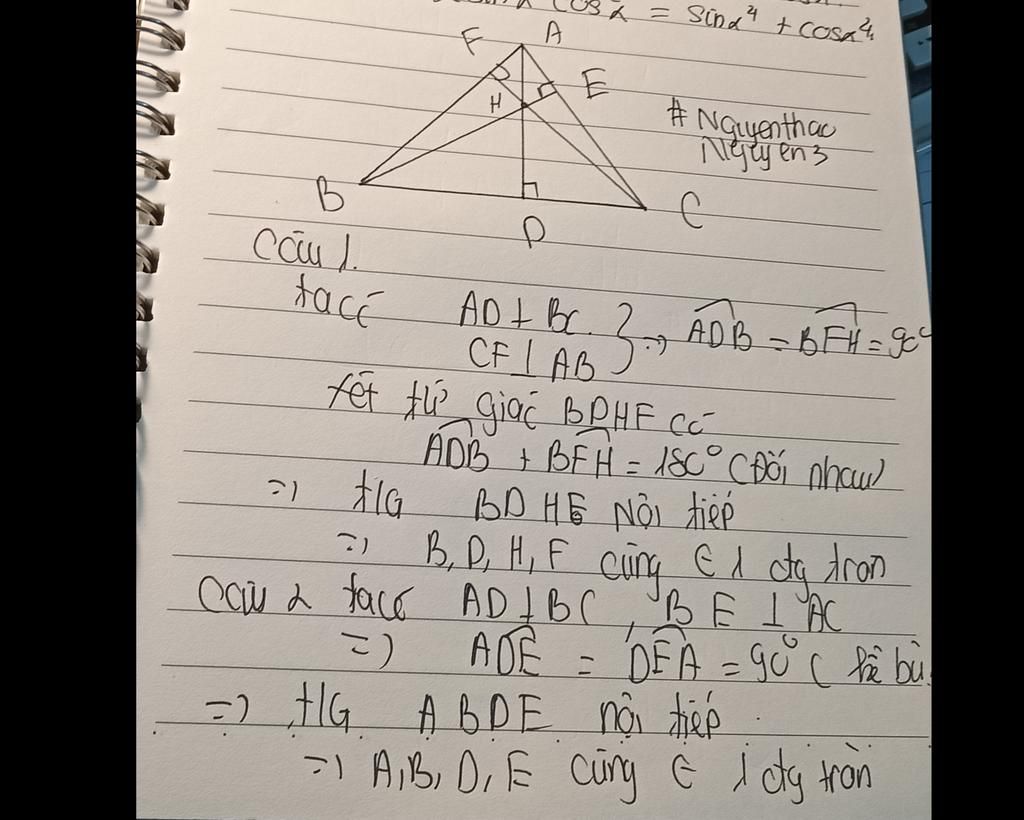 cosα = sinα⁴ + cosα⁴
F A
H E
# Nguyenthac
Nguyen3
B
C
D
Câu 1.
ta có AD ⊥ BC } => ADB = BFH = 90°
CF ⊥ AB
xét tứ giác BDHF có
ADB + BFH = 180° (Đối nhau)
=> t/G BDHF Nội tiếp
=> B, D, H, F cùng ∈ 1 đtg tron
Câu 2 ta có AD ⊥ BC, BE ⊥ AC
=> ADE = DEA = 90° ( kề bù
=> t/G ABDE nội tiếp
=> A, B, D, E cùng ∈ 1 đtg tròn